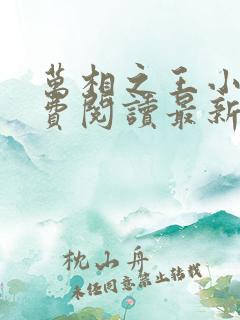 萬相之王小
費閱讀最新
枕山舟
未经同意禁止转载